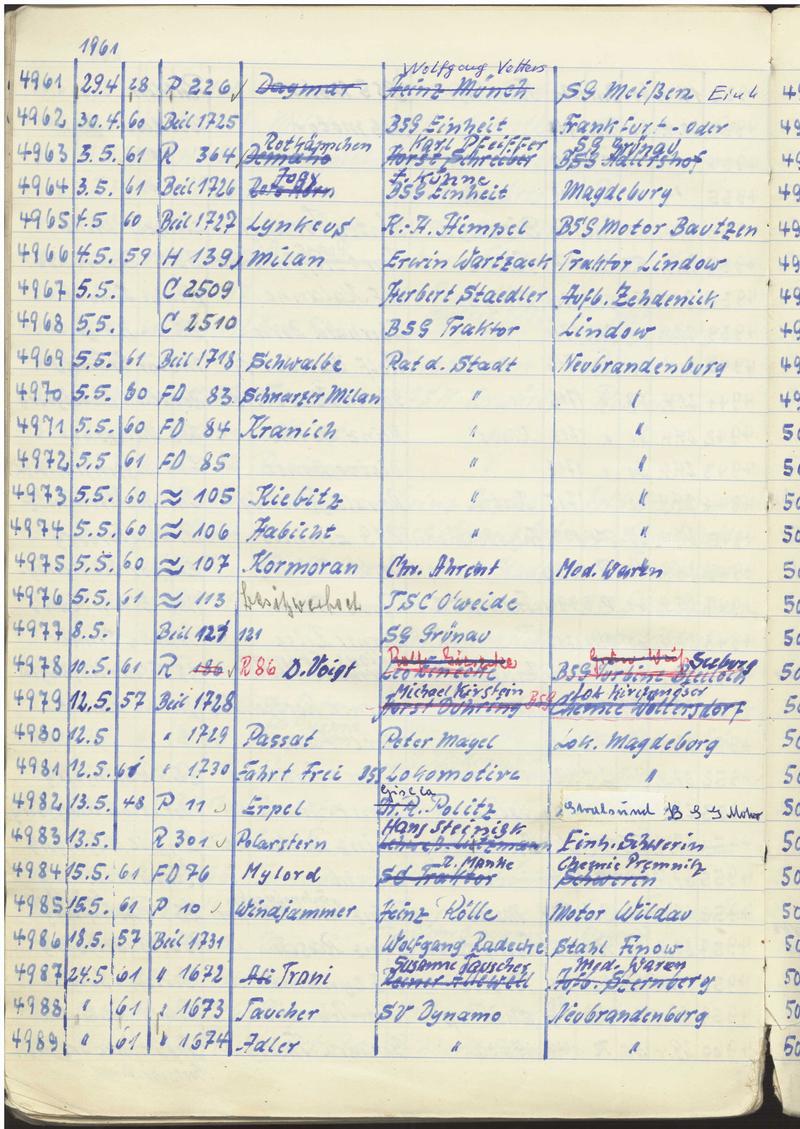 1961
Wolfgang Vetters
4961 29.4 28 P 226 Dagmar Heinz Münch SG Meißen
4962 30.4. 60 Beil 1725 BSG Einheit Frankfurt-Oder
Rotkäppchen Karl Pfeiffer SG Grünau
4963 3.5. 61 R 364 Horst Schreiber BSG Adlershof
F. Kühne
4964 3.5. 61 Beil 1726 BSG Einheit Magdeburg
4965 4.5 60 Beil 1727 Lynkeus K.-H. Himpel BSG Motor Bautzen
4966 4.5. 59 H 139 Milan Erwin Wartzack Traktor Lindow
4967 5.5. C 2509 Herbert Staedler Aufb. Zehdenick
4968 5.5. C 2510 BSG Traktor Lindow
4969 5.5. 61 Beil 1718 Schwalbe Rat d. Stadt Neubrandenburg
4970 5.5. 60 FD 83 Schwarzer Milan " "
4971 5.5. 60 FD 84 Kranich " "
4972 5.5 61 FD 85 " "
4973 5.5. 60 ≈ 105 Kiebitz " "
4974 5.5. 60 ≈ 106 Habicht " "
4975 5.5. 60 ≈ 107 Kormoran Chr. Ahrent Med. Waren
4976 5.5. 61 ≈ 113 TSC O'weide
4977 8.5. Beil 121 121 SG Grünau
4978 10.5. 61 R 186 R 86 D. Voigt BSG Turbine Seeburg
Michael Kirstein Lok Kirchmöser
4979 12.5. 57 Beil 1728 Horst Dühring BSG Chemie Woltersdorf
4980 12.5 " 1729 Passat Peter Mayel Lok. Magdeburg
4981 12.5. 61 " 1730 Fahrt Frei Lokomotive "
Gisela
4982 13.5. 48 P 11 Erpel Politz Stralsund BSG Motor
Hans Sternisk
4983 13.5. R 301 Polarstern Einh. Schwerin
R. Manke Chemie Premnitz
4984 15.5. 61 FD 76 Mylord SG Traktor Schwerin
4985 15.5. 61 P 10 Windjammer Heinz Kölle Motor Wildau
4986 18.5. 57 Beil 1731 Wolfgang Radecke Stahl Finow
Susanne Tauscher Med. Waren
4987 24.5 61 " 1672 Trani Aufb. Sternberg
4988 " 61 " 1673 Taucher SV Dynamo Neubrandenburg
4989 " 61 " 1674 Adler " "